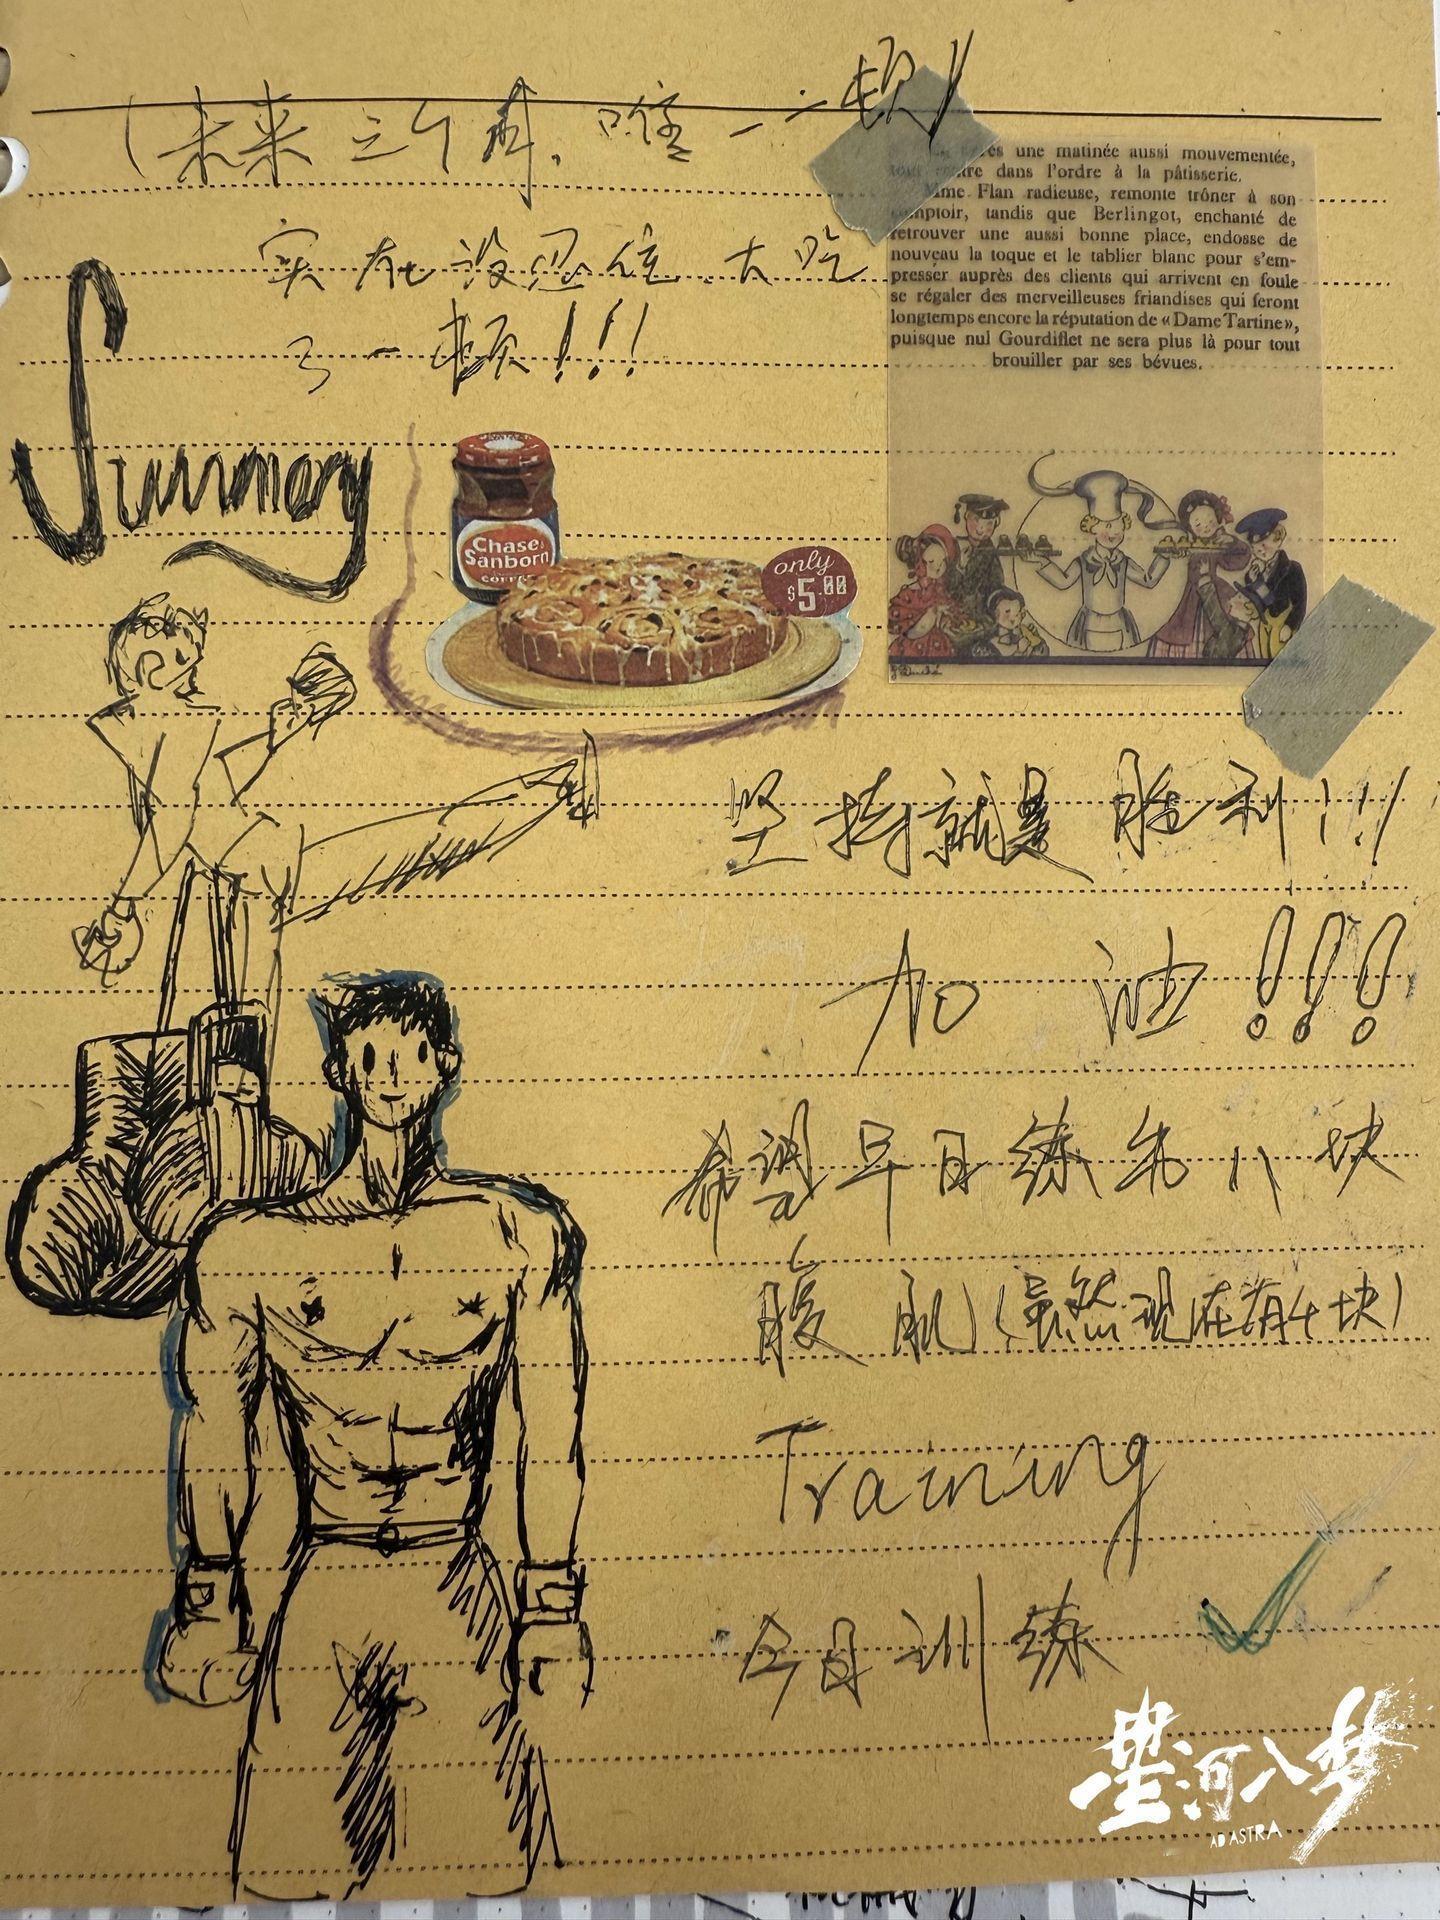 (未来三个月,唯一一顿)
实在没忍住,大吃
了一顿!!!
Summary
Chase &
Sanborn
only
$5.00
une matinée aussi mouvementée,
dans l'ordre à la pâtisserie.
Mme Flan radieuse, remonte trôner à son
comptoir, tandis que Berlingot, enchanté de
retrouver une aussi bonne place, endosse de
nouveau la toque et le tablier blanc pour s'em-
presser auprès des clients qui arrivent en foule
se régaler des merveilleuses friandises qui feront
longtemps encore la réputation de «Dame Tartine»,
puisque nul Gourdiflet ne sera plus là pour tout
brouiller par ses bévues.
坚持就是胜利!!!
加油!!!
希望早日练出八块
腹肌(虽然现在有4块)
Training
今日训练
星河入梦
AD ASTRA